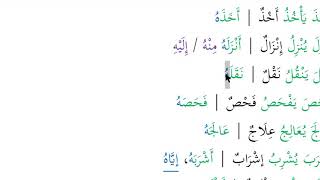 يَأْخُذُ أَخْذٌ | أَخَذَهُ
يُنْزِلُ إِنْزَالٌ | أَنْزَلَهُ مِنْهُ / إِلَيْهِ
يَنْقُلُ نَقْلٌ | نَقَلَهُ
يَفْحَصُ فَحْصٌ | فَحَصَهُ
يُعَالِجُ عِلَاجٌ | عَالَجَهُ
يُشْرِبُ إِشْرَابٌ | أَشْرَبَهُ، إِيَّاهُ